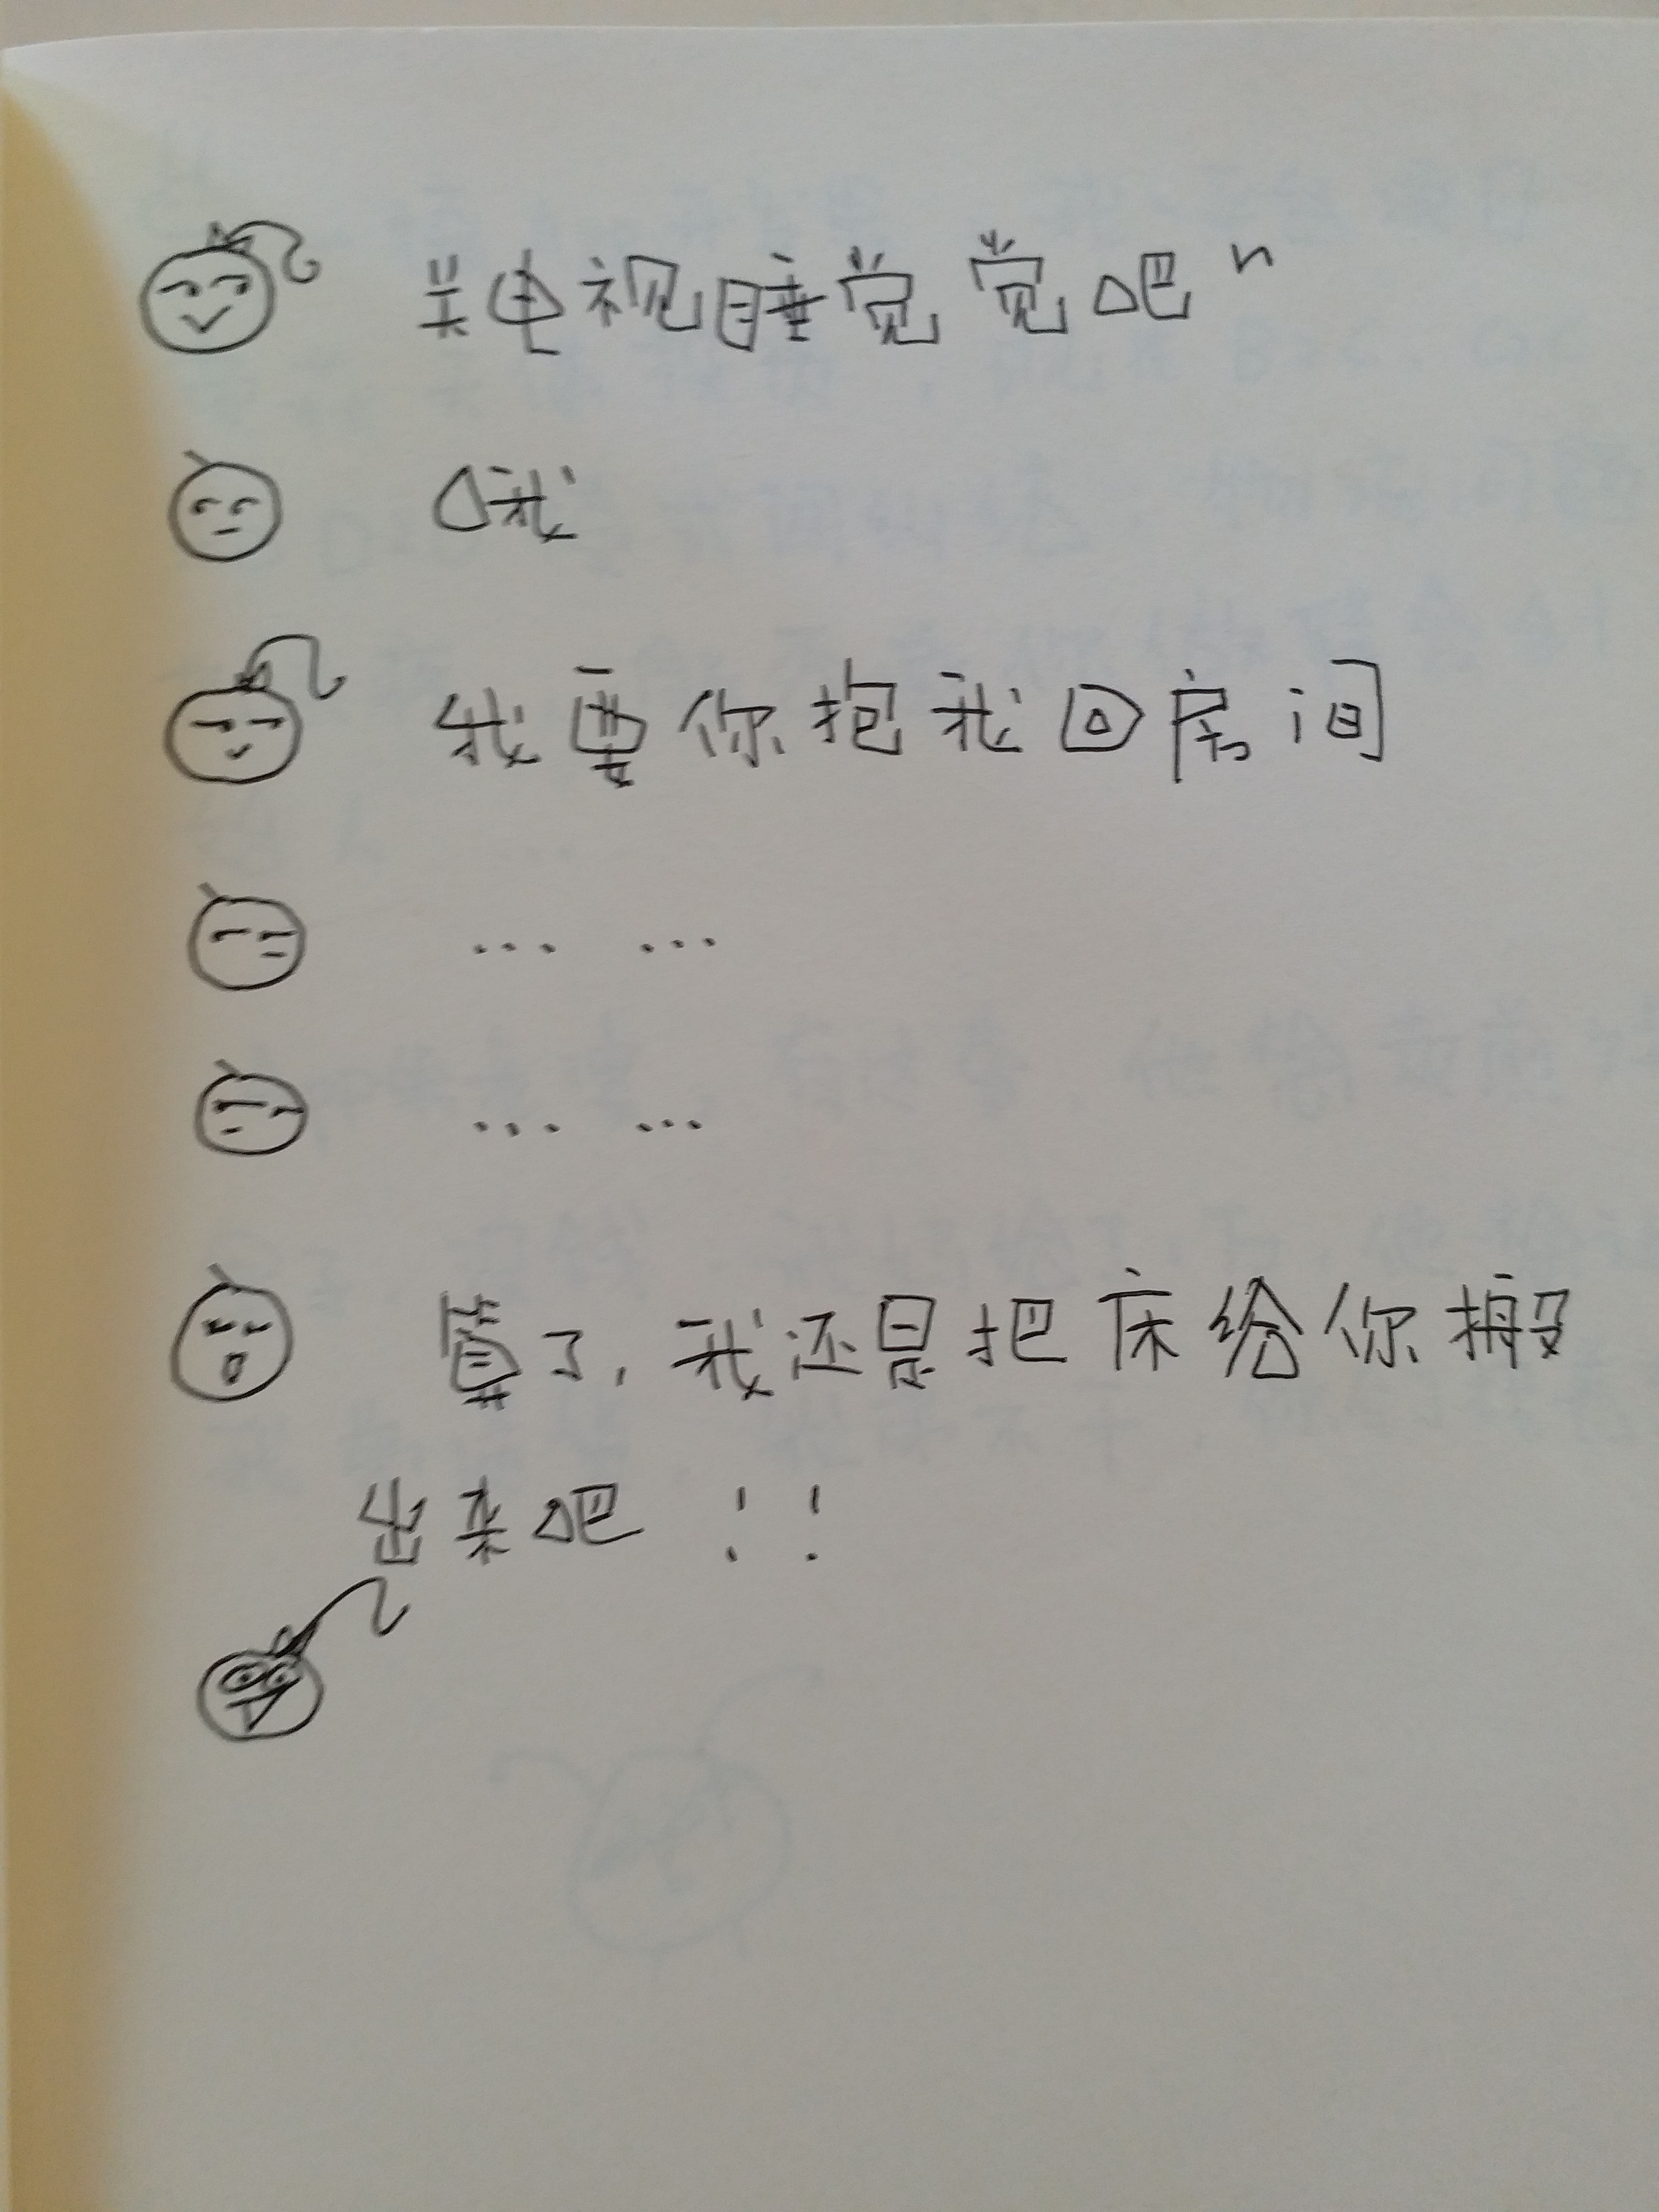 关电视睡觉觉吧~
哦
我要你抱我回房间
... ...
... ...
算了,我还是把床给你搬
出来吧!!